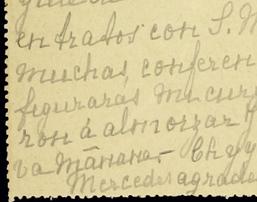 en tratos con S. M
muchas, conferen
figuraras mi curi
ron á almorzar y
va Mañana.- Ch y y
Mercedes agrade